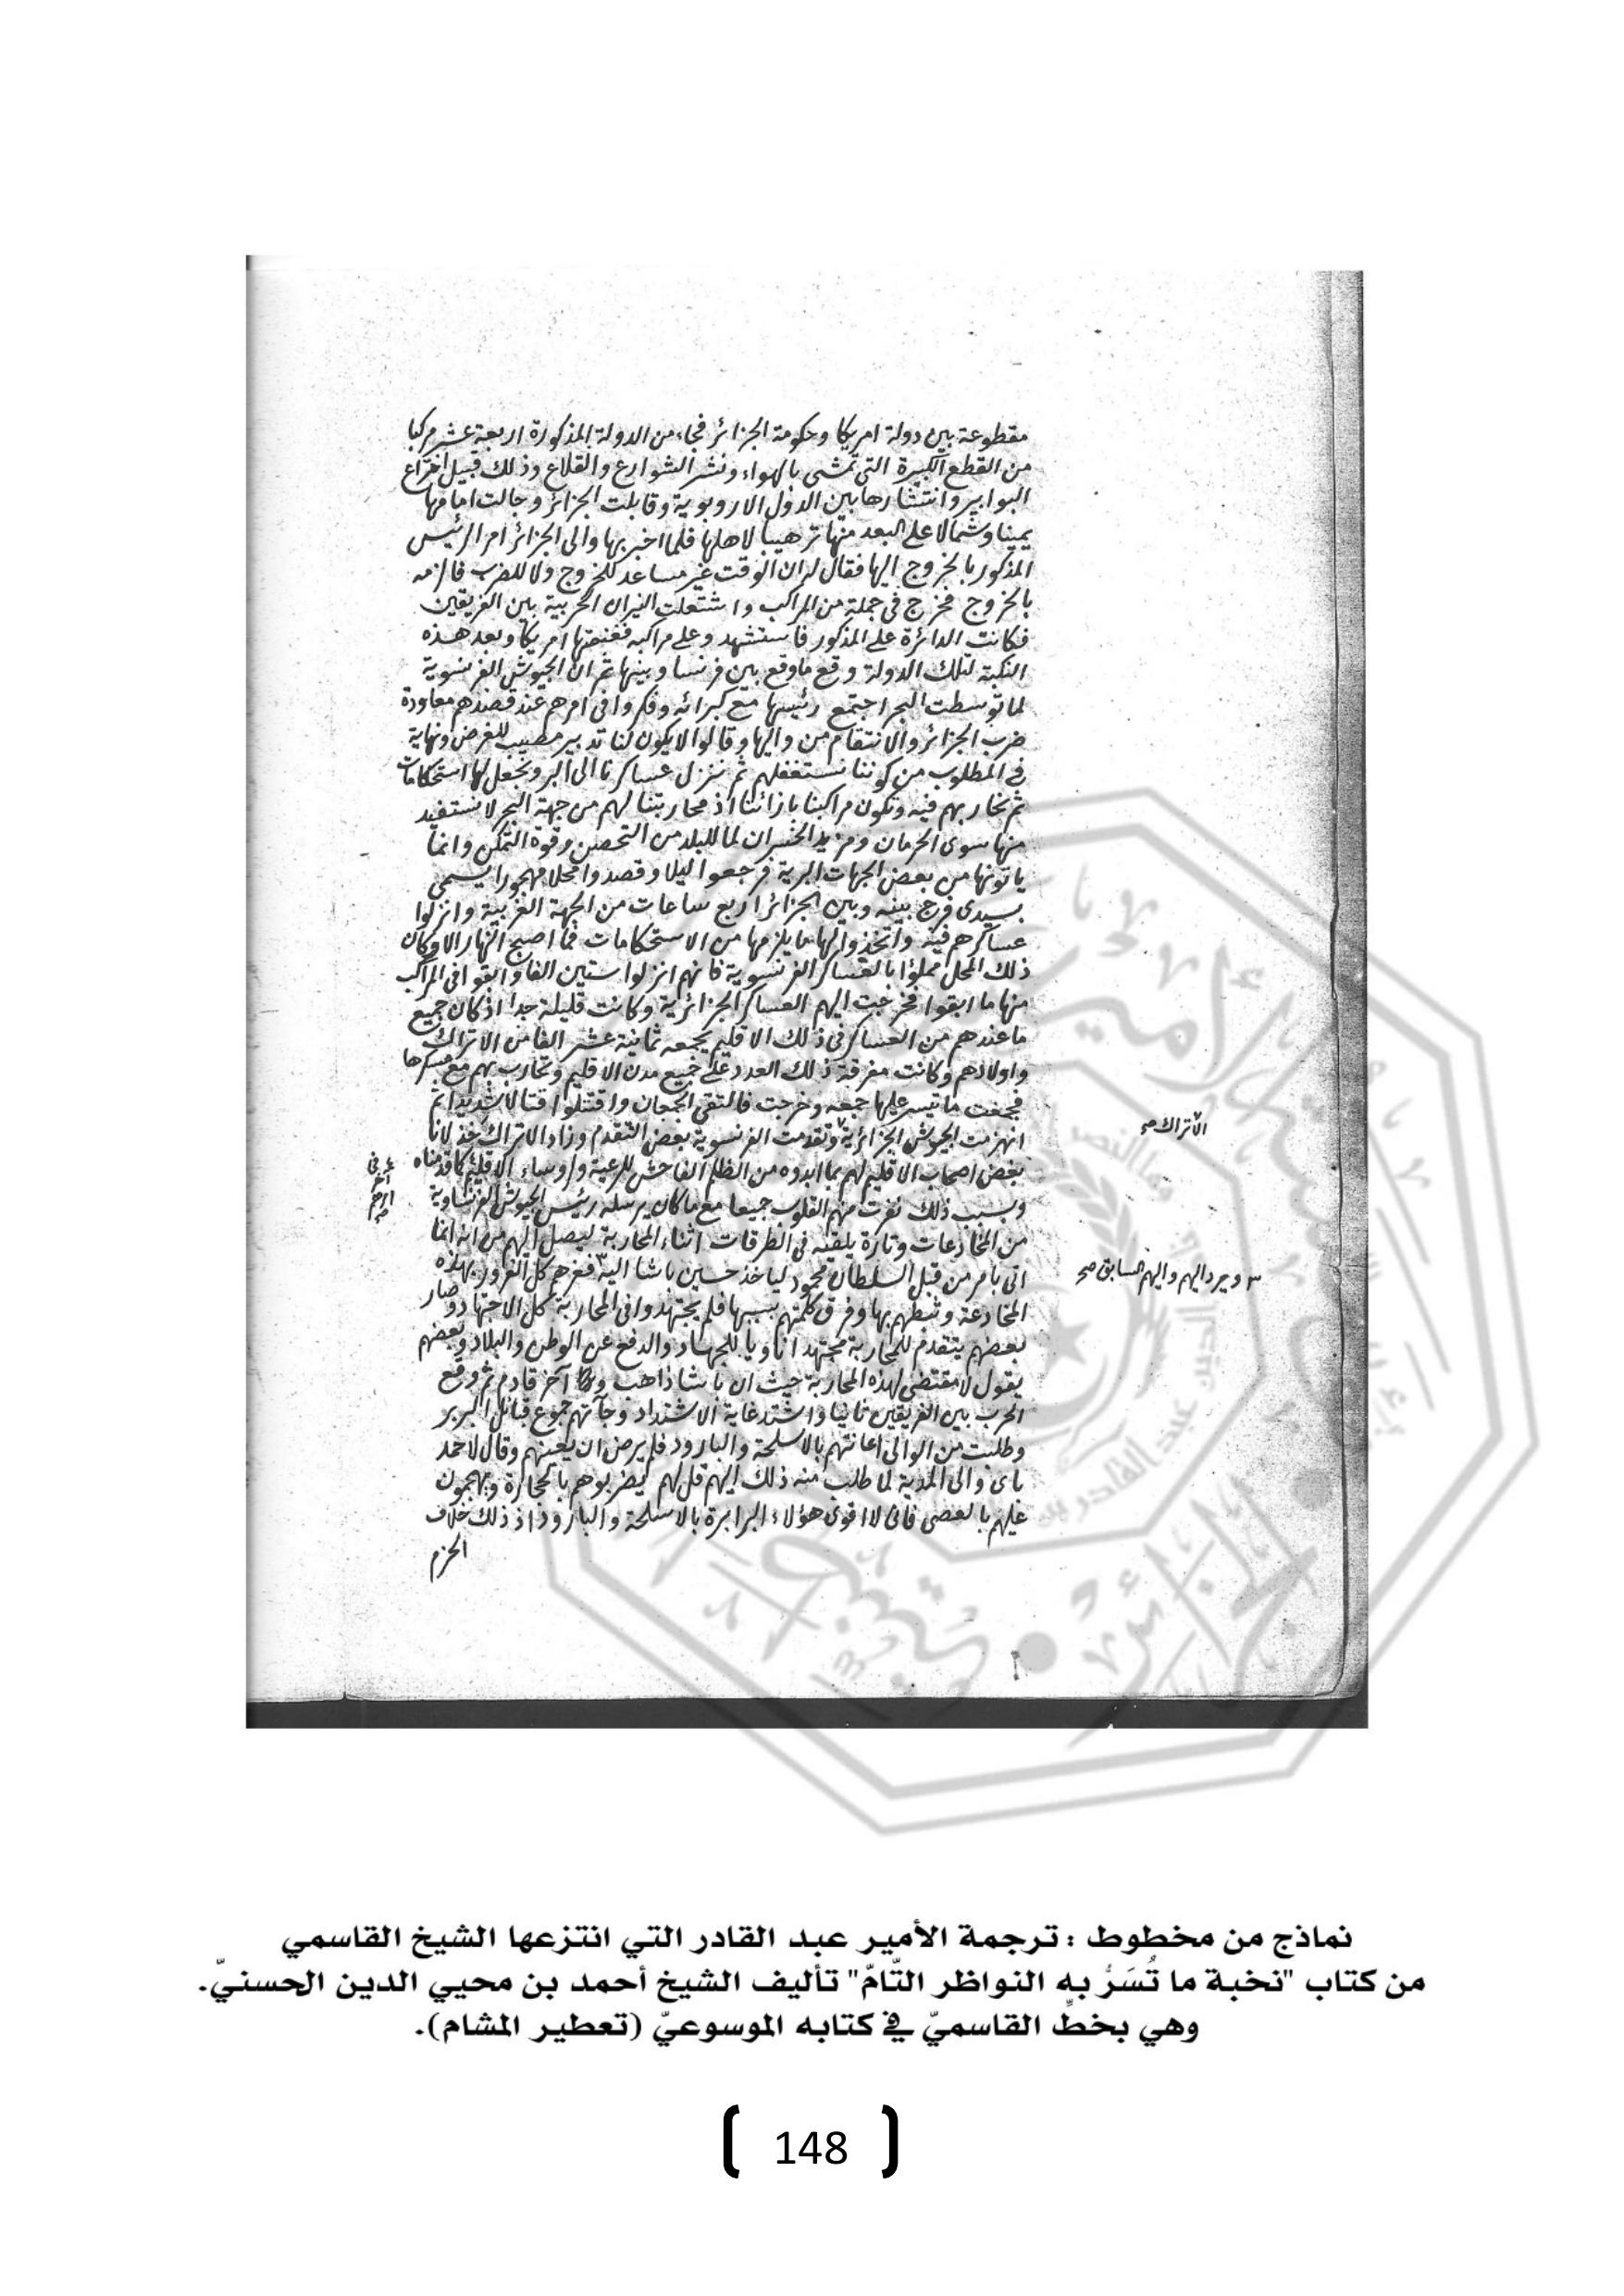 مقطوعة بين دولة امريكا وحكومة الجزائر فجاء من الدولة المذكورة اربعة عشر مركبا
من القطع الكبيرة التى تمشى بالهواء ونشر الشوارع والقلاع وذلك قبيل اختراع
البوابير وانتشارها بين الدول الاروبوية وقابلت الجزائر وجالت امامها
يمينا وشمالا على البعد منها ترهيبا لاهلها فلما اخبر بها والى الجزائر امر الرئيس
المذكور بالخروج اليها فقال له ان الوقت غير مساعد للخروج ولا للضرب فالزمه
بالخروج فخرج فى جملة من المراكب واشتعلت النيران الحربية بين الفريقين
فكانت الدائرة على المذكور فاستشهد وعلى مراكبه فغنمتها امريكا وبعد هذه
النكبة لتلك الدولة وقع ماوقع بين فرنسا وبينها ثم ان الجيوش الفرنسوية
لما توسطت البحر اجتمع رئيسها مع كبرائه وفكروا فى امرهم عند قصدهم معاودة
ضرب الجزائر والانتقام من واليها وقالوا لا يكون لنا تدبير مصيب للغرض ونهاية
فى المطلوب من كوننا نستغفلهم ثم ننزل عساكرنا الى البر ونجعل لها استحكامات
ثم نحاربهم فيه وتكون مراكبنا بازائنا اذ محاربتنا لهم من جهة البحر لا نستفيد
منها سوى الحرمان ومزيد الخسران لما للبلد من التحصين وقوة التمكن وانما
ياتونها من بعض الجهات البرية فرجعوا ليلا وقصدوا محلا مهجورا يسمى
بسيدى فرج بينه وبين الجزائر اربع ساعات من الجهة الغربية وانزلوا
عساكرهم فيه واتخذوا لها ما يلزمها من الاستحكامات فما اصبح النهار الا وكان
ذلك المحل مملؤا بالعساكر الفرنسوية فانهم انزلوا ستين الفا وابقوا فى المراكب
منها ما ابقوا فخرجت اليهم العساكر الجزائرية وكانت قليلة جدا اذ كان جميع
ما عندهم من العساكر فى ذلك الاقليم يجمعه ثمانية عشر الفا من الاتراك
واولادهم وكانت مفرقة ذلك العدد على جميع مدن الاقليم وتحارب بهم مع عسكرها
فجمعت ما تيسر عليها جمعه وخرجت فالتقى الجمعان واقتتلوا قتالا شديدا ثم
انهزمت الجيوش الجزائرية وتقدمت الفرنسوية بعض التقدم وزاد الاتراك خذلانا
الاتراك صح
بغض اصحاب الاقليم لهم بما ابدوه من الظلم الفاحش للرعية ورؤساء الاقليم كما قدمناه
وبسبب ذلك نفرت منهم القلوب جميعا مع ما كان يرسله رئيس الجيوش الفرنساوية
من المخادعات وتارة يلقيه فى الطرقات اثناء المحاربة ليصل اليهم من انه انما
اتى بامر من قبل السلطان محمود لياخذ حسين باشا اليه ٣ فغرهم كل الغرور بهذه
٣ ويرد اليهم واليهم السابق صح
المخادعة وثبطهم بها وفرق كلمتهم بسببها فلم يجتهدوا فى المحاربة كل الاجتهاد وصار
بعضهم يتقدم للمحاربة مجتهدا ناويا للجهاد والدفع عن الوطن والبلاد وبعضهم
يقول لا مقتضى لهذه المحاربة حيث ان باشا ذاهب آخر قادم ثم وقع
الحرب بين الفريقين ثانيا واشتد غاية الاشتداد وجآتهم جموع قبائل البربر
وطلبت من الوالى اعانتهم بالاسلحة والبارود فلم يرض ان يعينهم وقال لاحمد
باى والى المدية لما طلب منه ذلك اليهم قل لهم يضربوهم بالحجارة ويهجمون
عليهم بالعصى فانى لا اقوى هؤلاء البرابرة بالاسلحة والبارود اذ ذلك خلاف
الحزم
نماذج من مخطوط : ترجمة الأمير عبد القادر التي انتزعها الشيخ القاسمي
من كتاب "نخبة ما تُسَرُّ به النواظر التّامّ" تأليف الشيخ أحمد بن محيي الدين الحسنيّ.
وهي بخطِّ القاسميّ في كتابه الموسوعيّ (تعطير المشام).
148